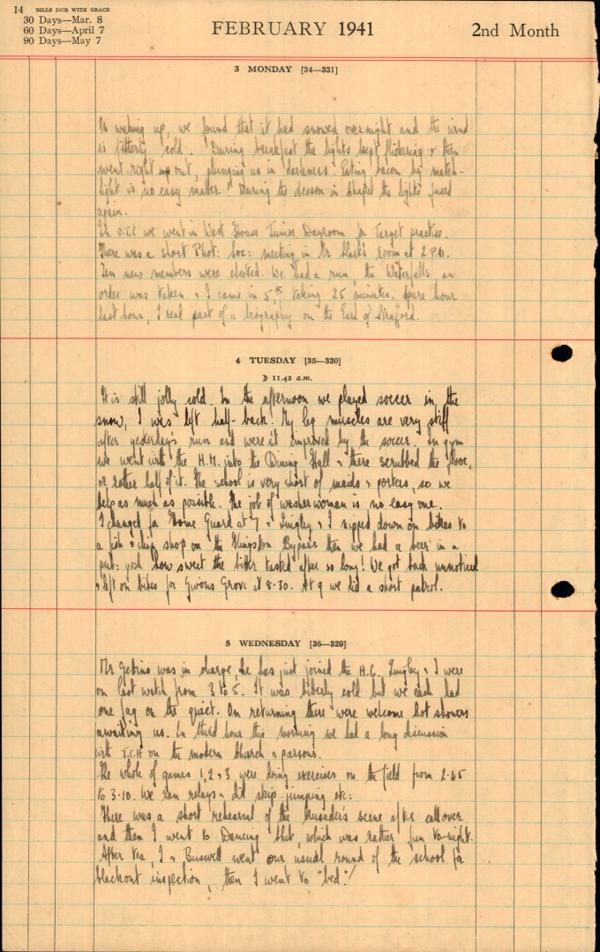 14 BILLS DUE WITH GRACE
30 Days—Mar. 8
60 Days—April 7
90 Days—May 7
FEBRUARY 1941
2nd Month
3 MONDAY [34—331]
On waking up, we found that it had snowed overnight and the wind
is bitterly cold. During breakfast the lights kept flickering & then
went right out, plunging us in darkness! Eating bacon by match-
light is no easy matter! During the lesson in the lights fused
again.
In O.T.C we went in West House Junior Dayroom for Target practice.
There was a short Phot: Soc: meeting in Mr Clark's room at 2 P.M.
Ten new members were elected. We had a run, the Waterfalls, an
order was taken & I came in 5th taking 25 minutes. Spare hour
last hour, I read part of a biography on the Earl of Strafford.
4 TUESDAY [35—330]
11.42 a.m.
It is still jolly cold. In the afternoon we played soccer in the
snow, I was left half-back. My leg muscles are very stiff
after yesterday's run and weren't improved by the soccer. In gym
we went with the H.M. into the Dining Hall & there scrubbed the floor,
or rather half of it. The school is very short of maids & porters, so we
help as much as possible. The job of washerwoman is no easy one.
I changed for Home Guard at 7 & Lingley & I nipped down on bikes to
a fish & chip shop on the Kingston Bypass then we had a beer in a
pub: gosh how sweet the bitter tasted after so long! We got back unnoticed
& left on bikes for Givons Grove at 8.30. At 9 we did a short patrol.
5 WEDNESDAY [36—329]
Mr was in charge, he has just joined the H.G. Lingley & I were
on last watch from 3 to 5. It was bitterly cold but we each had
one fag on the quiet. On returning there were welcome hot showers
awaiting us. In third hour this morning we had a long discussion
with T.C.H on the modern Church & parsons.
The whole of games 1, 2 & 3 were doing exercises on the field from 2.45
to 3.10. We ran relays & did skip jumping etc:
There was a short rehearsal of the Crusader's scene after callover
and then I went to Dancing which was rather fun to-night.
After tea, I & Buswell went our usual round of the school for
blackout inspection, then I went to "bed."